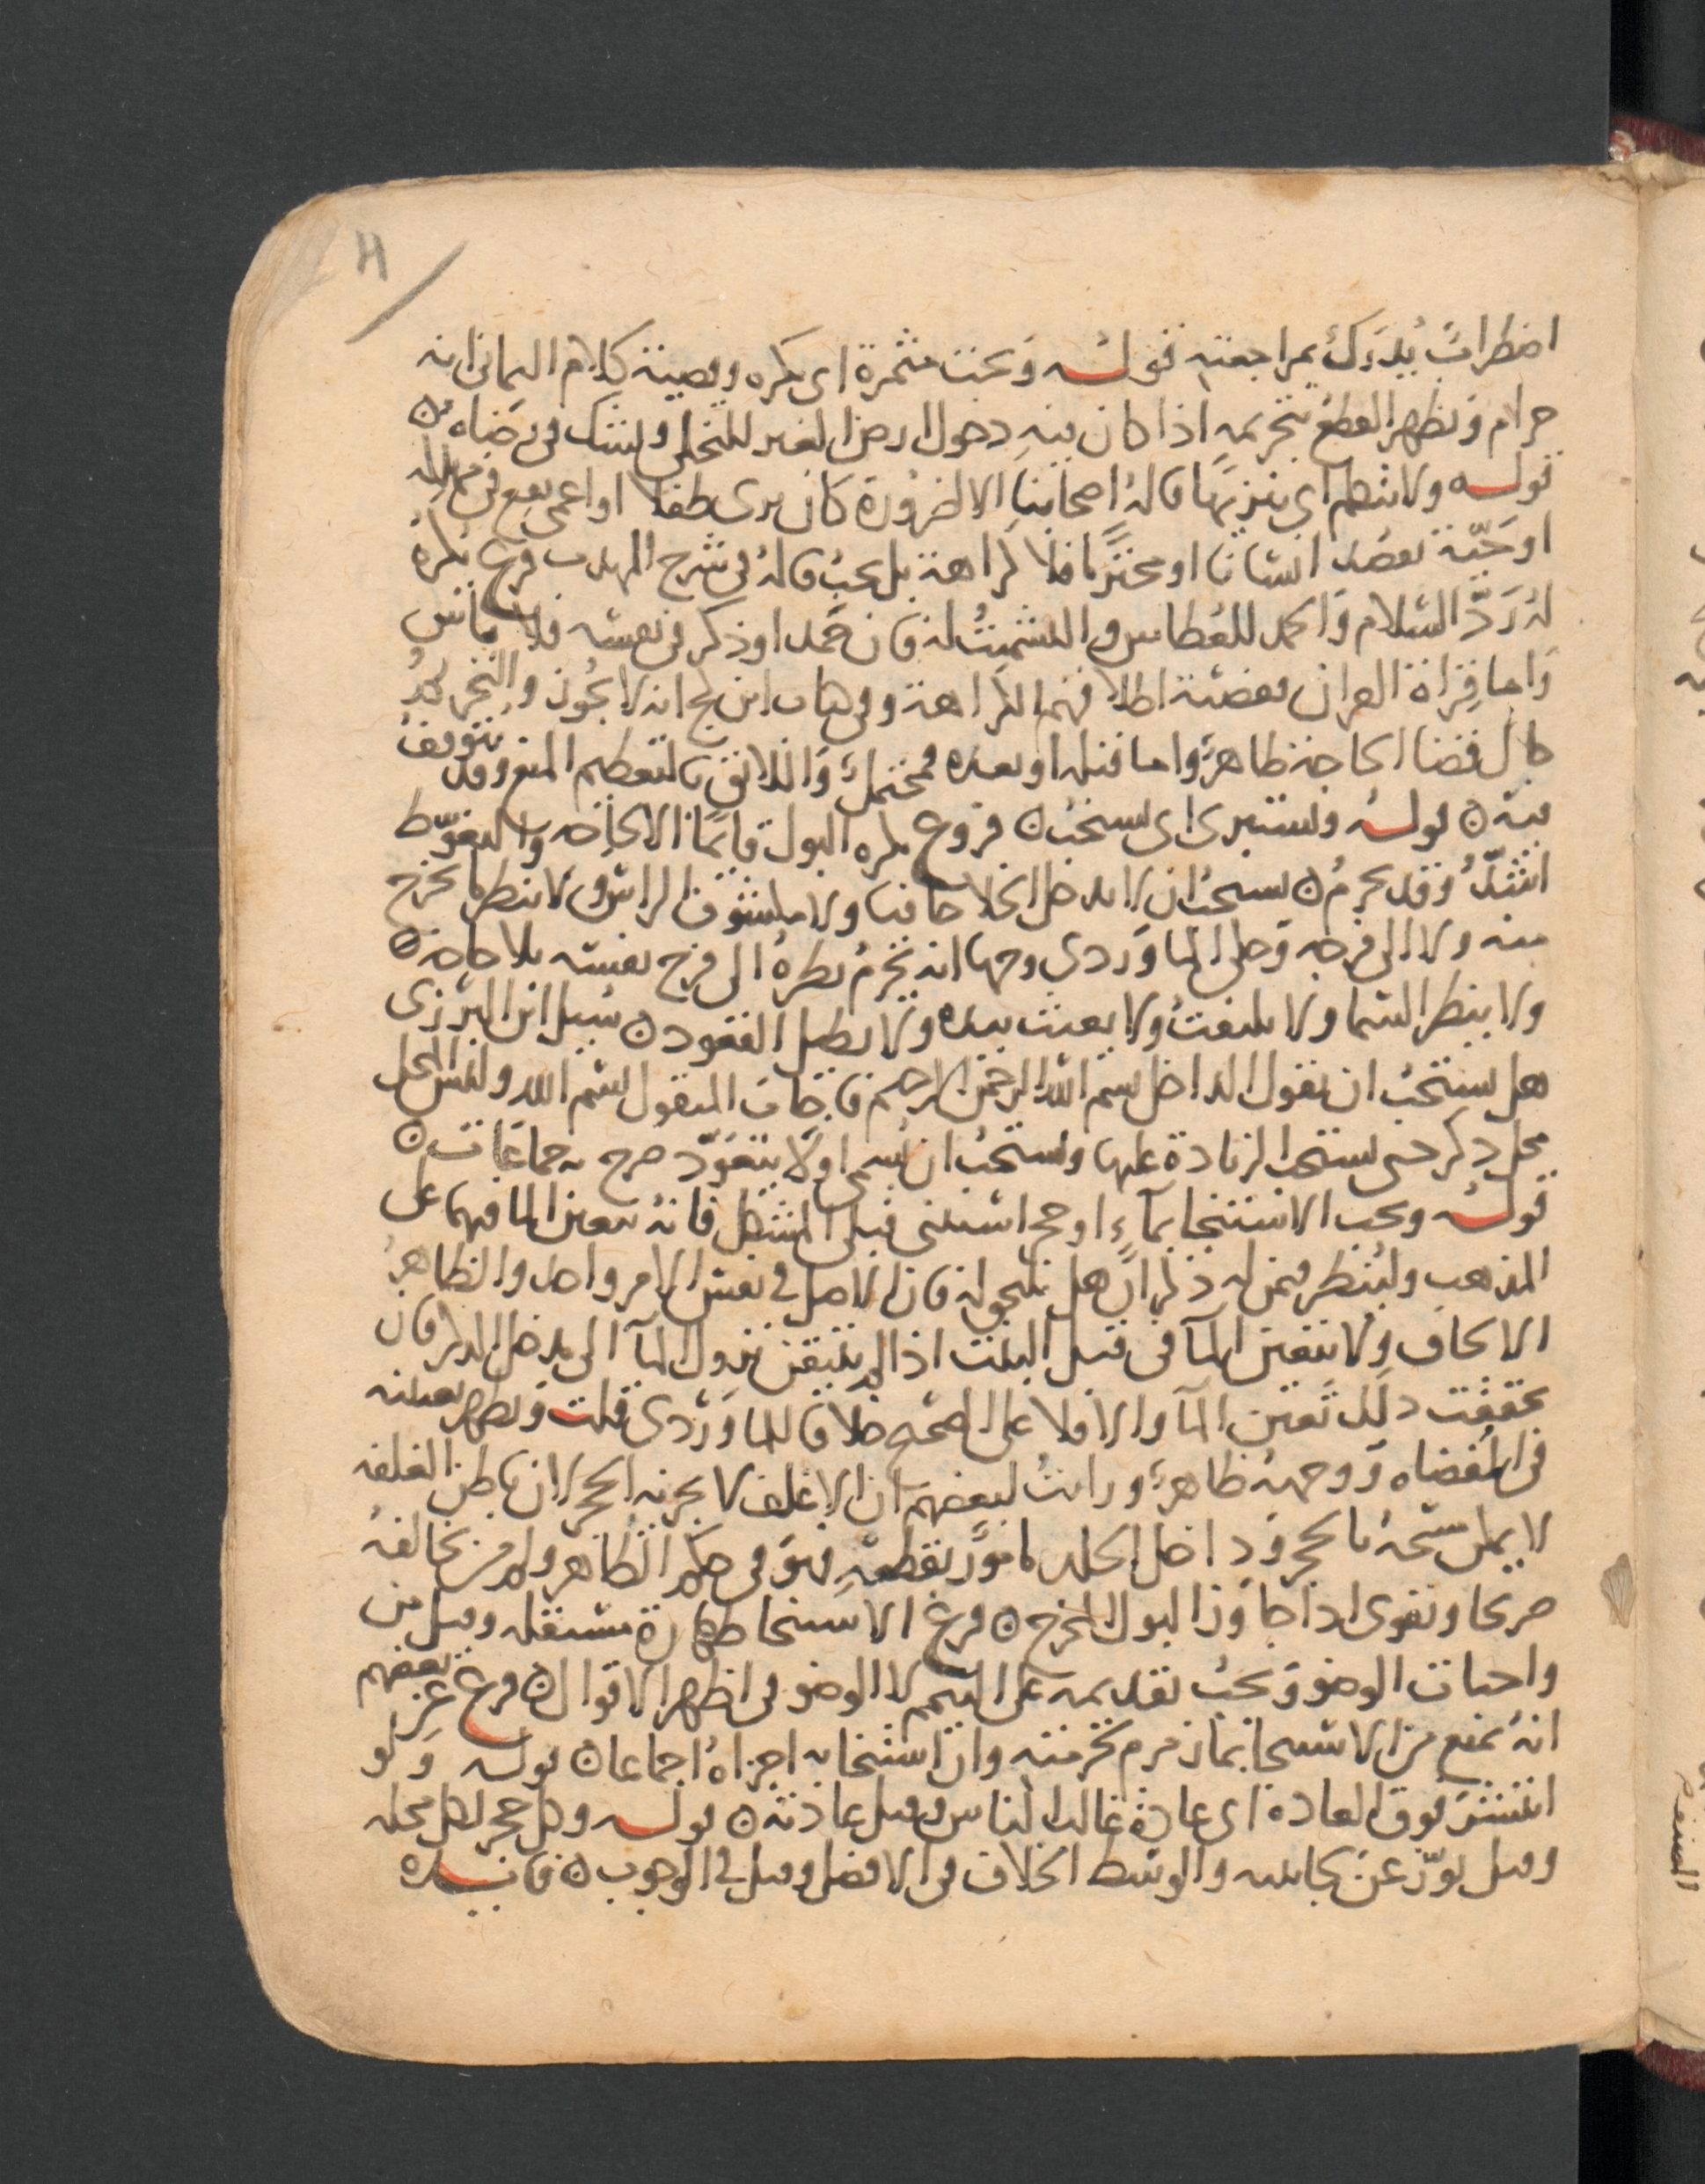 اضطراب يدرك بمراجعته قوله وتحت مثمرة اى يكره وقضية كلام البيانى انه
حرام ويظهر القطع بتحريمه اذا كان فيه دخول ارض الغير للتخلى وشك فى رضاه ن
قوله ولا يتكلم اى تنزيها قاله اصحابنا الا لضرورة كان يرى طفلا او اعمى يقع فى مهلكه
او حية تقصد انسانا او محترما فلا كراهة بل يجب قاله فى شرح المهذب فرع يكره
له رد السلام والحمد للعطاس والتشميت له فان حمد او ذكر فى نفسه فلا باس
واما قراة القران فقضية اطلاقهم الكراهة وفى كتاب ابن كج انه لا يجوز والتحريم
حال قضا الحاجة ظاهر واما قبله او بعده فمحتمل واللائق بالتعظيم المنع وقد يتوقف
فيه ن قوله ويستبرى اى يستحب ن فروع يكره البول قائما الا لحاجه والتغوط
اشد وقد يحرم ن يستحب ان لا يدخل الخلا حافيا ولا مكشوف الراس ولا ينظر ما يخرج
منه ولا الى فرجه وحكى الماوردى وجها انه يحرم نظره الى فرج نفسه بلا حاجه ن
ولا ينظر السما ولا يلتفت ولا يعبث بيده ولا يطيل القعود ن سيل ابن البزرى
هل يستحب ان يقول الداخل بسم الله الرحمن الرحيم فاجاب المنقول بسم الله وليس المحل
محل ذكر حتى يستحب الزيادة عليها ويستحب ان يسمى اولا ثم يتعوذ صرح به جماعات ن
قوله ويجب الاستنجا بماء او حجر استثنى قبلى المشكل فانه يتعين الما فيهما على
المذهب ولينظر فيمن له ذكران هل يلحق به فان الاصل فى نفس الامر واحد والظاهر
الالحاق ولا يتعين الما فى قبل البنت اذا لم يتيقن نزول الما الى مدخل الذكر فان
تحققت ذلك تعين الما والا فلا على الصحيح خلافا للماوردى قلت ويظهر تعينه
فى المفضاه ووجهه ظاهر ورايت لبعضهم ان الاغلف لا يجزيه الحجر لان باطن القلفه
لا يمكن مسحه بالحجر وداخل الجلد مامور بقطعه فهو فى حكم الظاهر ولم ار من يخالفه
صريحا ويقوى اذا جاوز البول المخرج ن فرع الاستنجا طهارة مستقله وقيل من
واجبات الوضو ويجب تقديمه على التيمم لا الوضو فى اظهر الاقوال ن فرع عن بعضهم
انه يمنع من الاستنجا بما زمزم لحرمته وان استنجا به اجزاه اجماعا ن قوله ولو
انتشر فوق العادة اى عادة غالب الناس وقيل عادته ن قوله وكل حجر لكل محله
وقيل يوزعن لجانبيه والوسط الخلاف فى الافضل وقيل فى الوجوب ن فايده